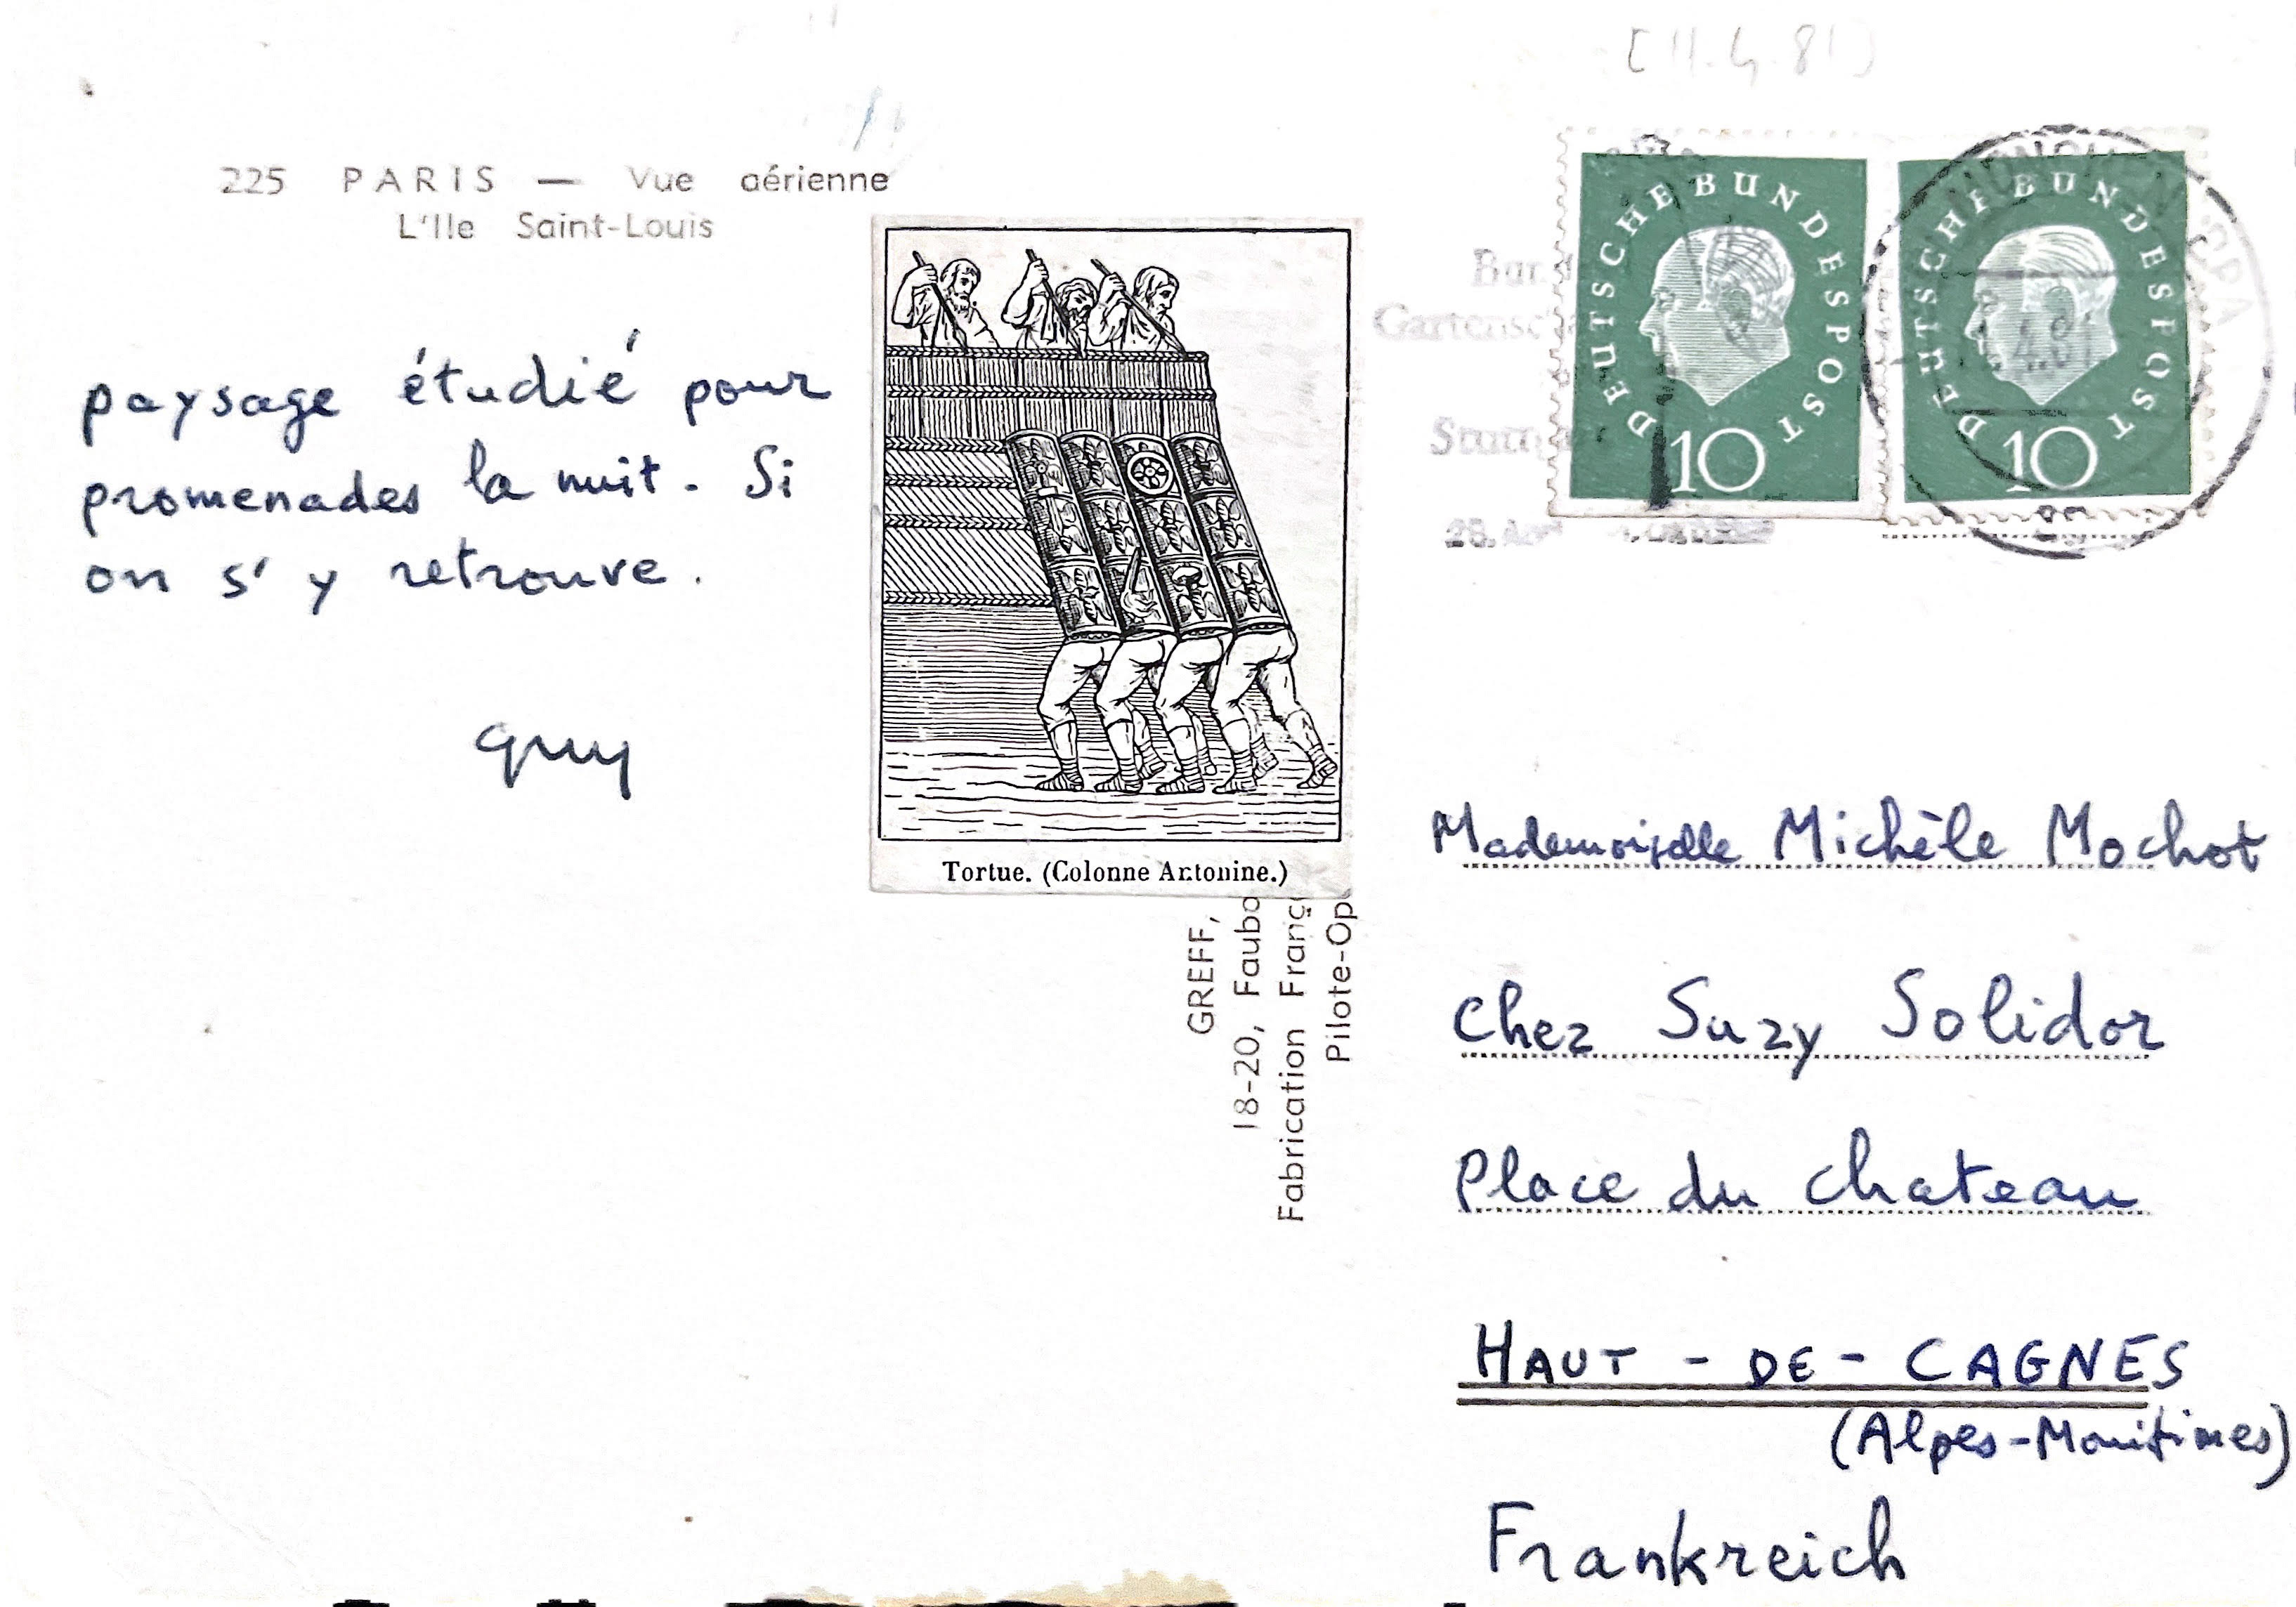 [11.4.81]
225 PARIS — Vue aérienne
L'Ile Saint-Louis
paysage étudié pour
promenades la nuit. Si
on s'y retrouve.
guy
Tortue. (Colonne Antonine.)
GREFF,
18-20,
Fabrication
DEUTSCHE BUNDESPOST
10
DEUTSCHE BUNDESPOST
10
Mademoiselle Michèle Mochot
chez Suzy Solidor
Place du chateau
HAUT-DE-CAGNES
(Alpes-Maritimes)
Frankreich